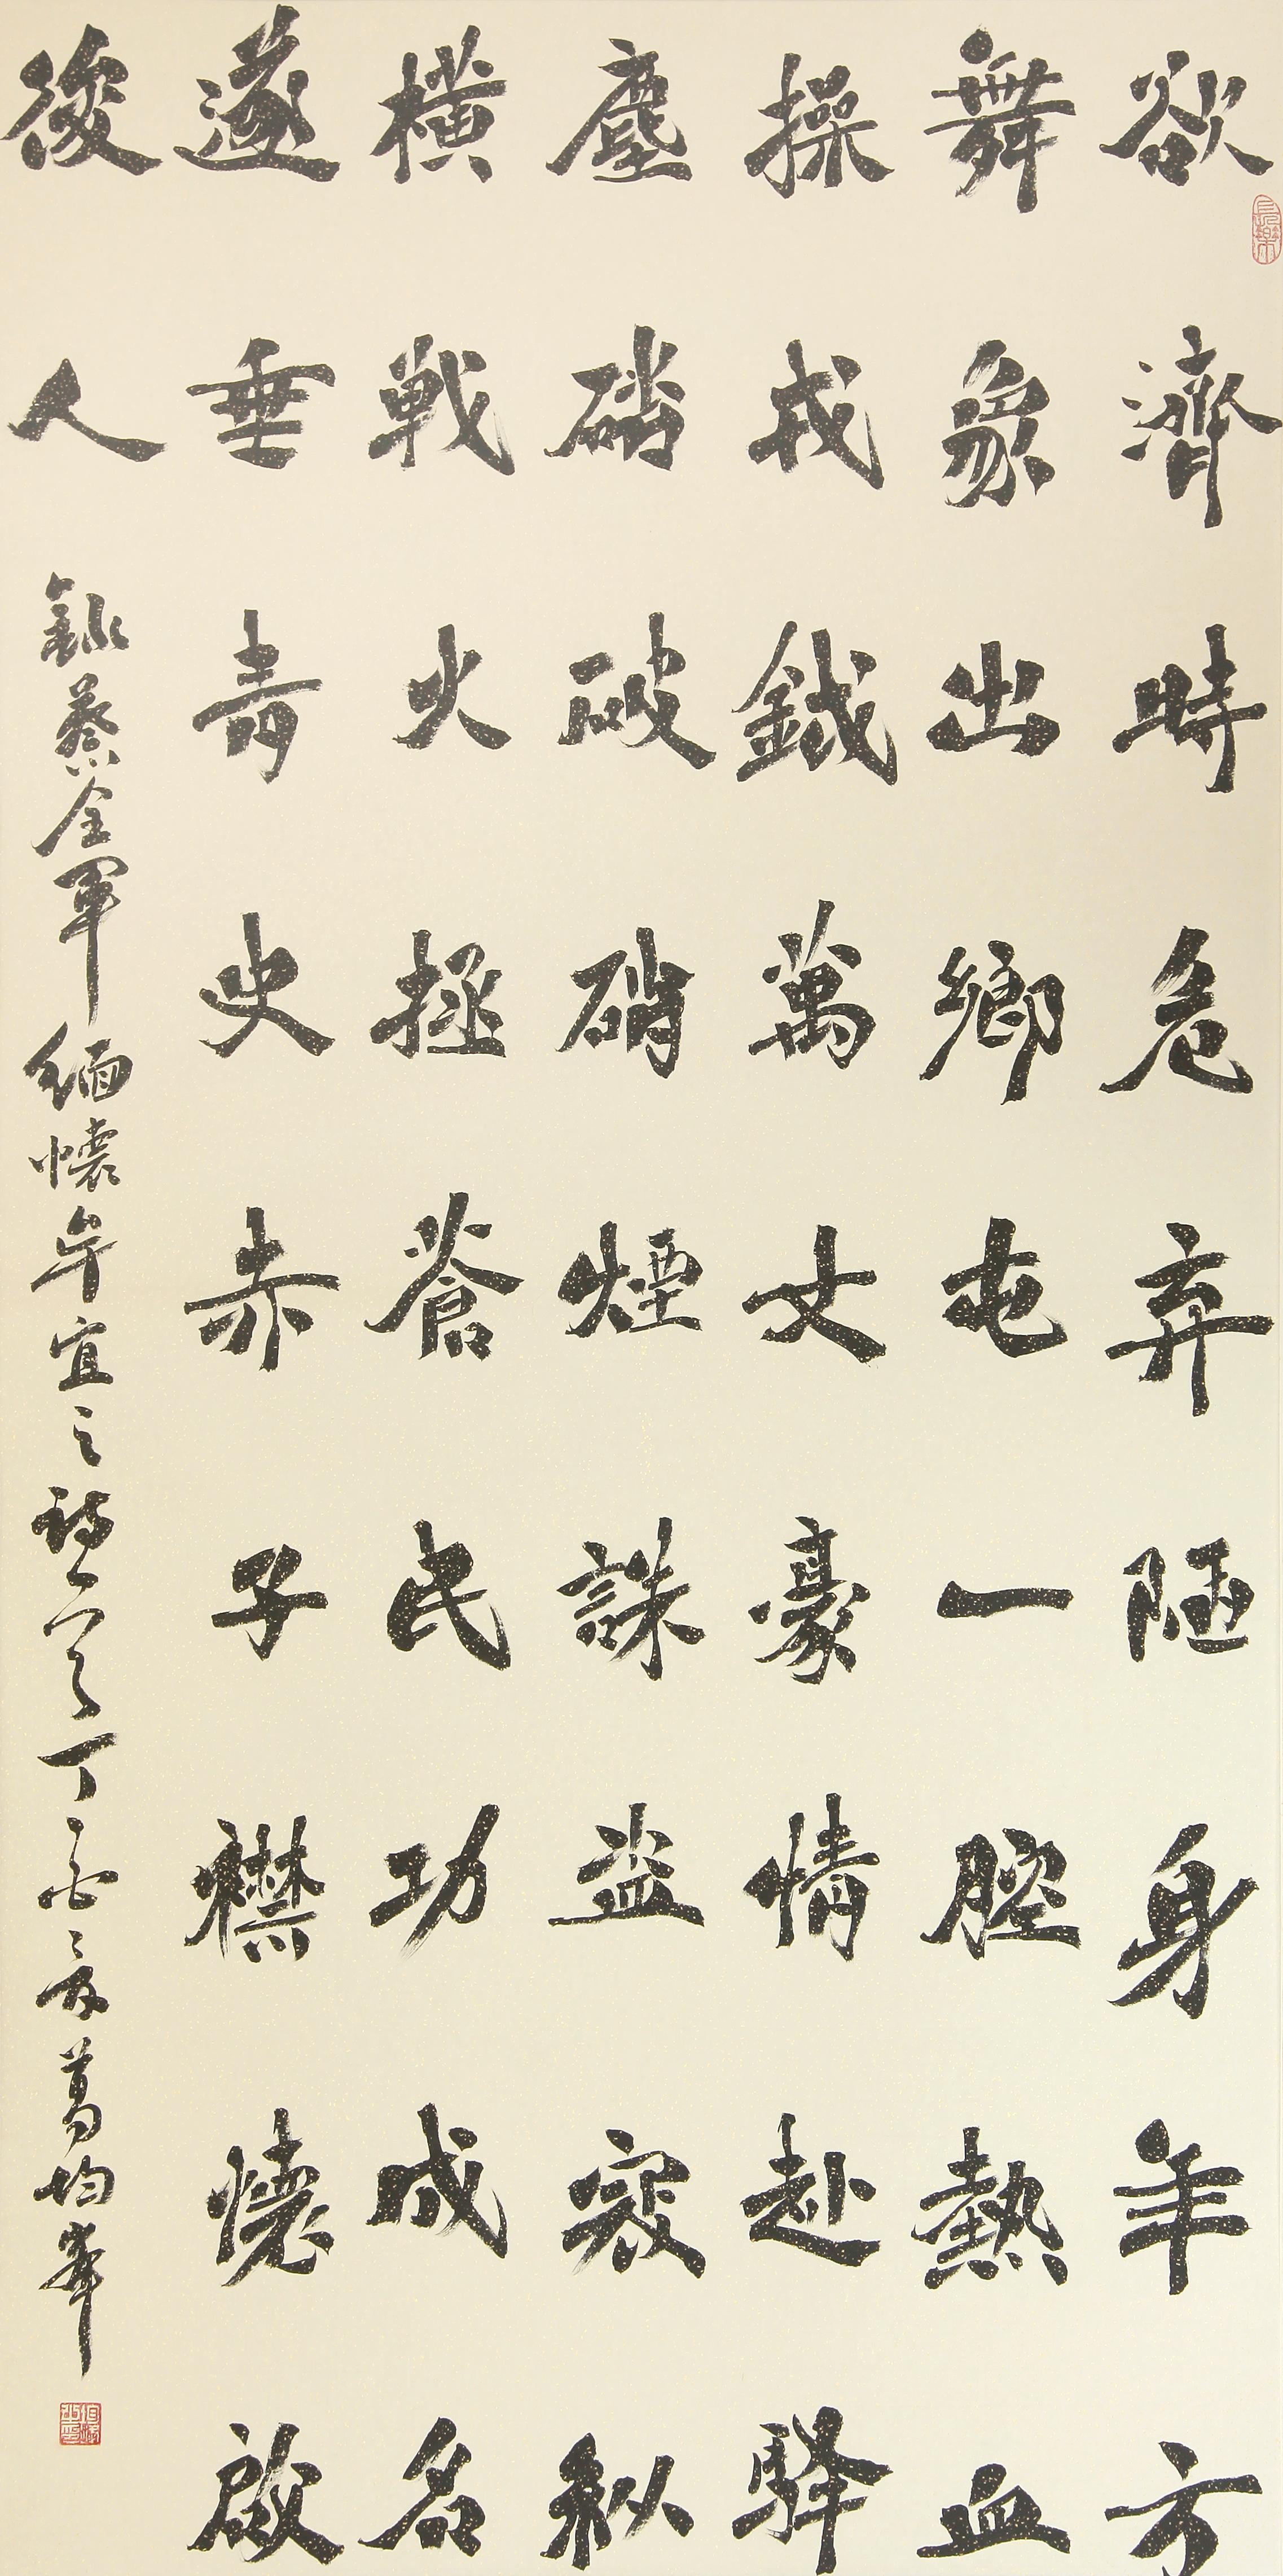 欲濟時危弃陋身年方
舞象出鄉屯一腔熱血
操戎鉞萬丈豪情赴驛
塵破硝煙誅盜寇纵
橫戦火拯蒼民功成名
遂垂青史赤子襟懷啟
後人 錄蔡全軍緬懷牟宜之詩一首丁酉葛均